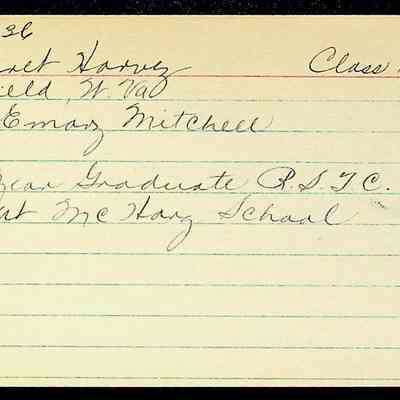 36
Harvey Class
ield, W. Va
Emory Mitchell
Year Graduate R.S.T.C.
at McHarg School